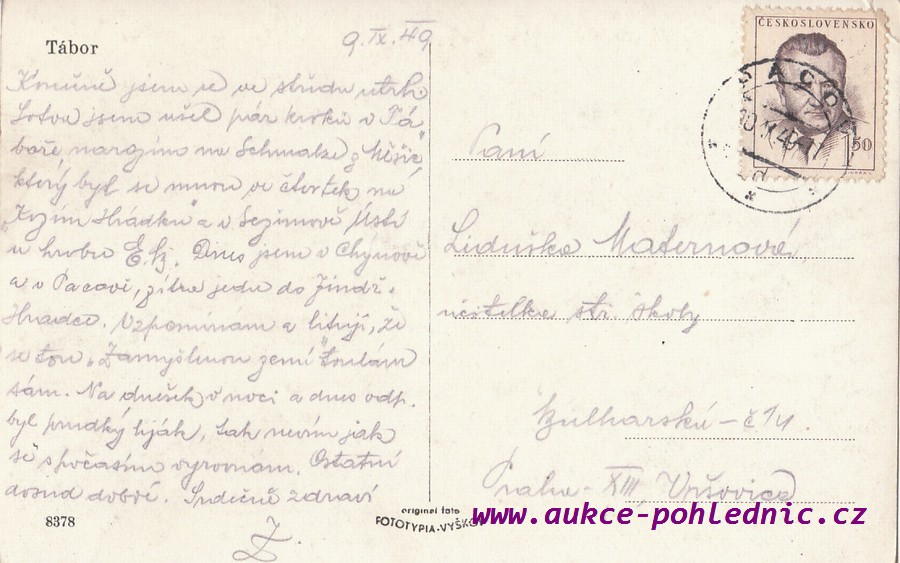 Tábor
9.IX.49
Konečně jsem se ve středu utrh.
Sotva jsem ušel pár kroků v Tá-
boře narazím na Schmalze z Měšic
který byl se mnou ve čtvrtek na
"Kozím Hrádku" a v Sezimově Ústí
u hrobu E. Dnes jsem v Chýnově
a v Pacově, zítra jedu do Jindř.
Hradce. Vzpomínám a lituji, že
se tou "Zamyšlenou zemí" toulám
sám. Na dnešek v noci a dnes odp.
byl prudký liják, tak nevím jak
se s počasím vyrovnám. Ostatní
dosud dobré. Srdečně zdraví
Z.
8378
original foto
FOTOTYPIA-VYŠKOV
ČESKOSLOVENSKO
1,50
PACOV
Paní
Liduška Maternová,
učitelka stř. školy
Bulharská - č 14
Praha - XIII, Vršovice
www.aukce-pohlednic.cz